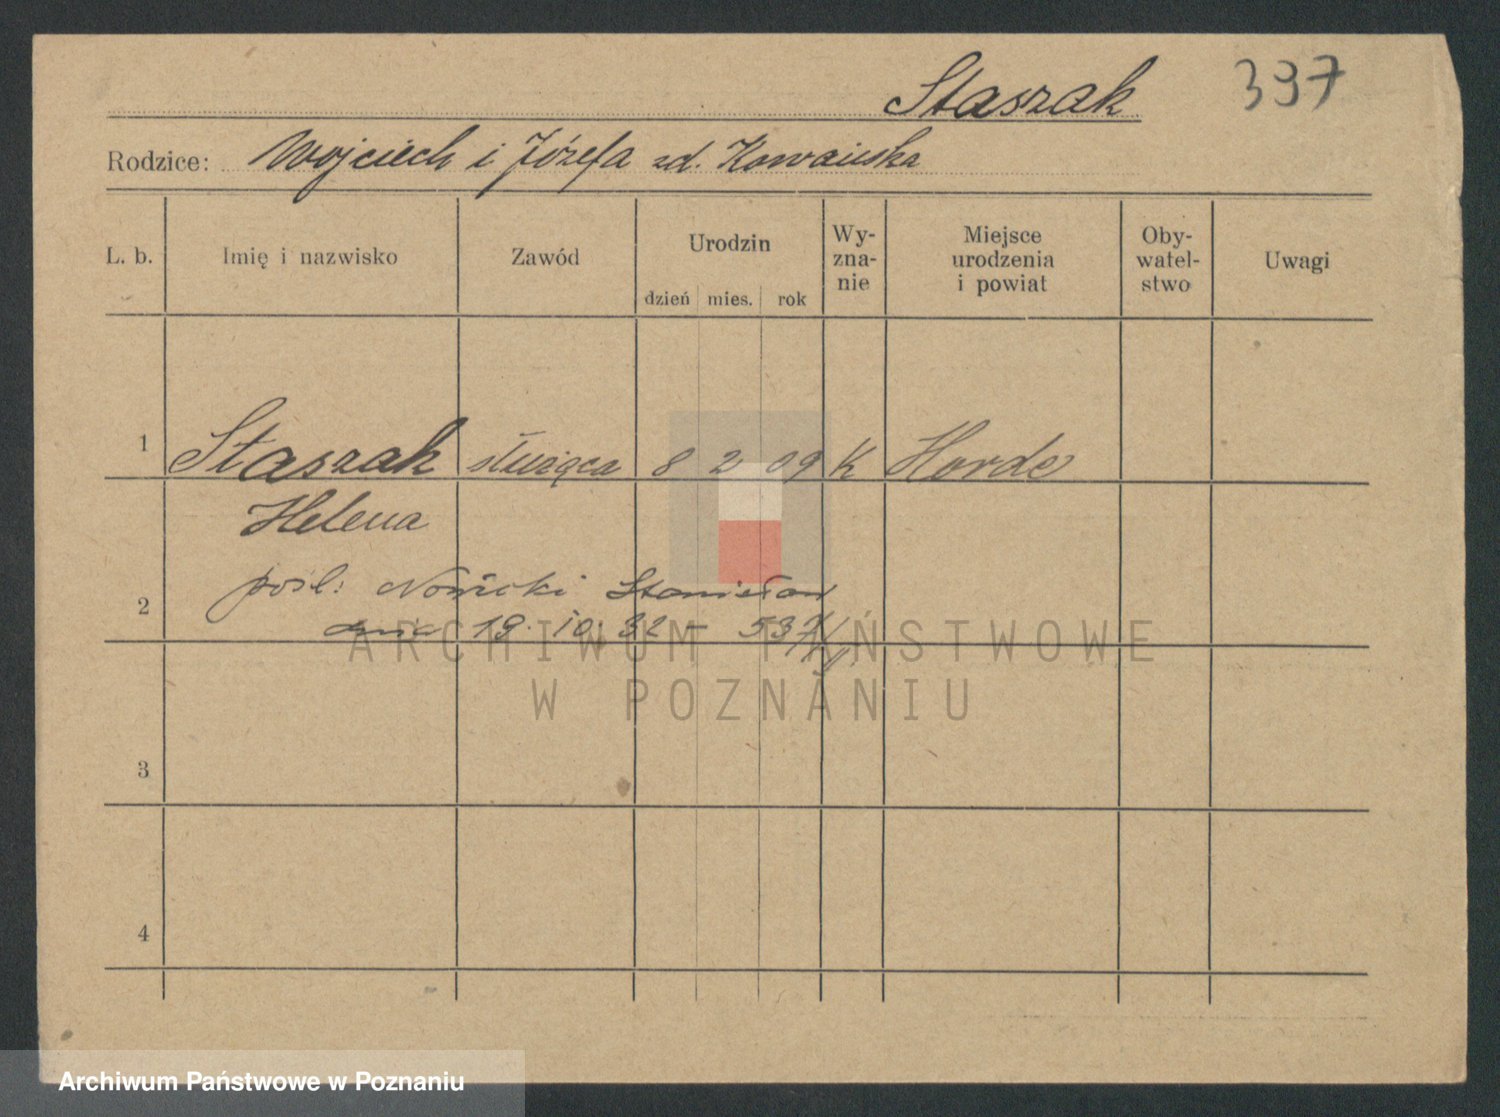 Staszak 397
Rodzice: Wojciech i Józefa zd. Kowalska
L. b. Imię i nazwisko Zawód Urodzin dzień mies. rok Wy-zna-nie Miejsce urodzenia i powiat Oby-watel-stwo Uwagi
1 Staszak służąca 8 2 09 K Horde
Helena
pośl: Nowicki Stanisław
2
dnia 19. 10. 32 - 537
ARCHIWUM PAŃSTWOWE
W POZNANIU
3
4
Archiwum Państwowe w Poznaniu